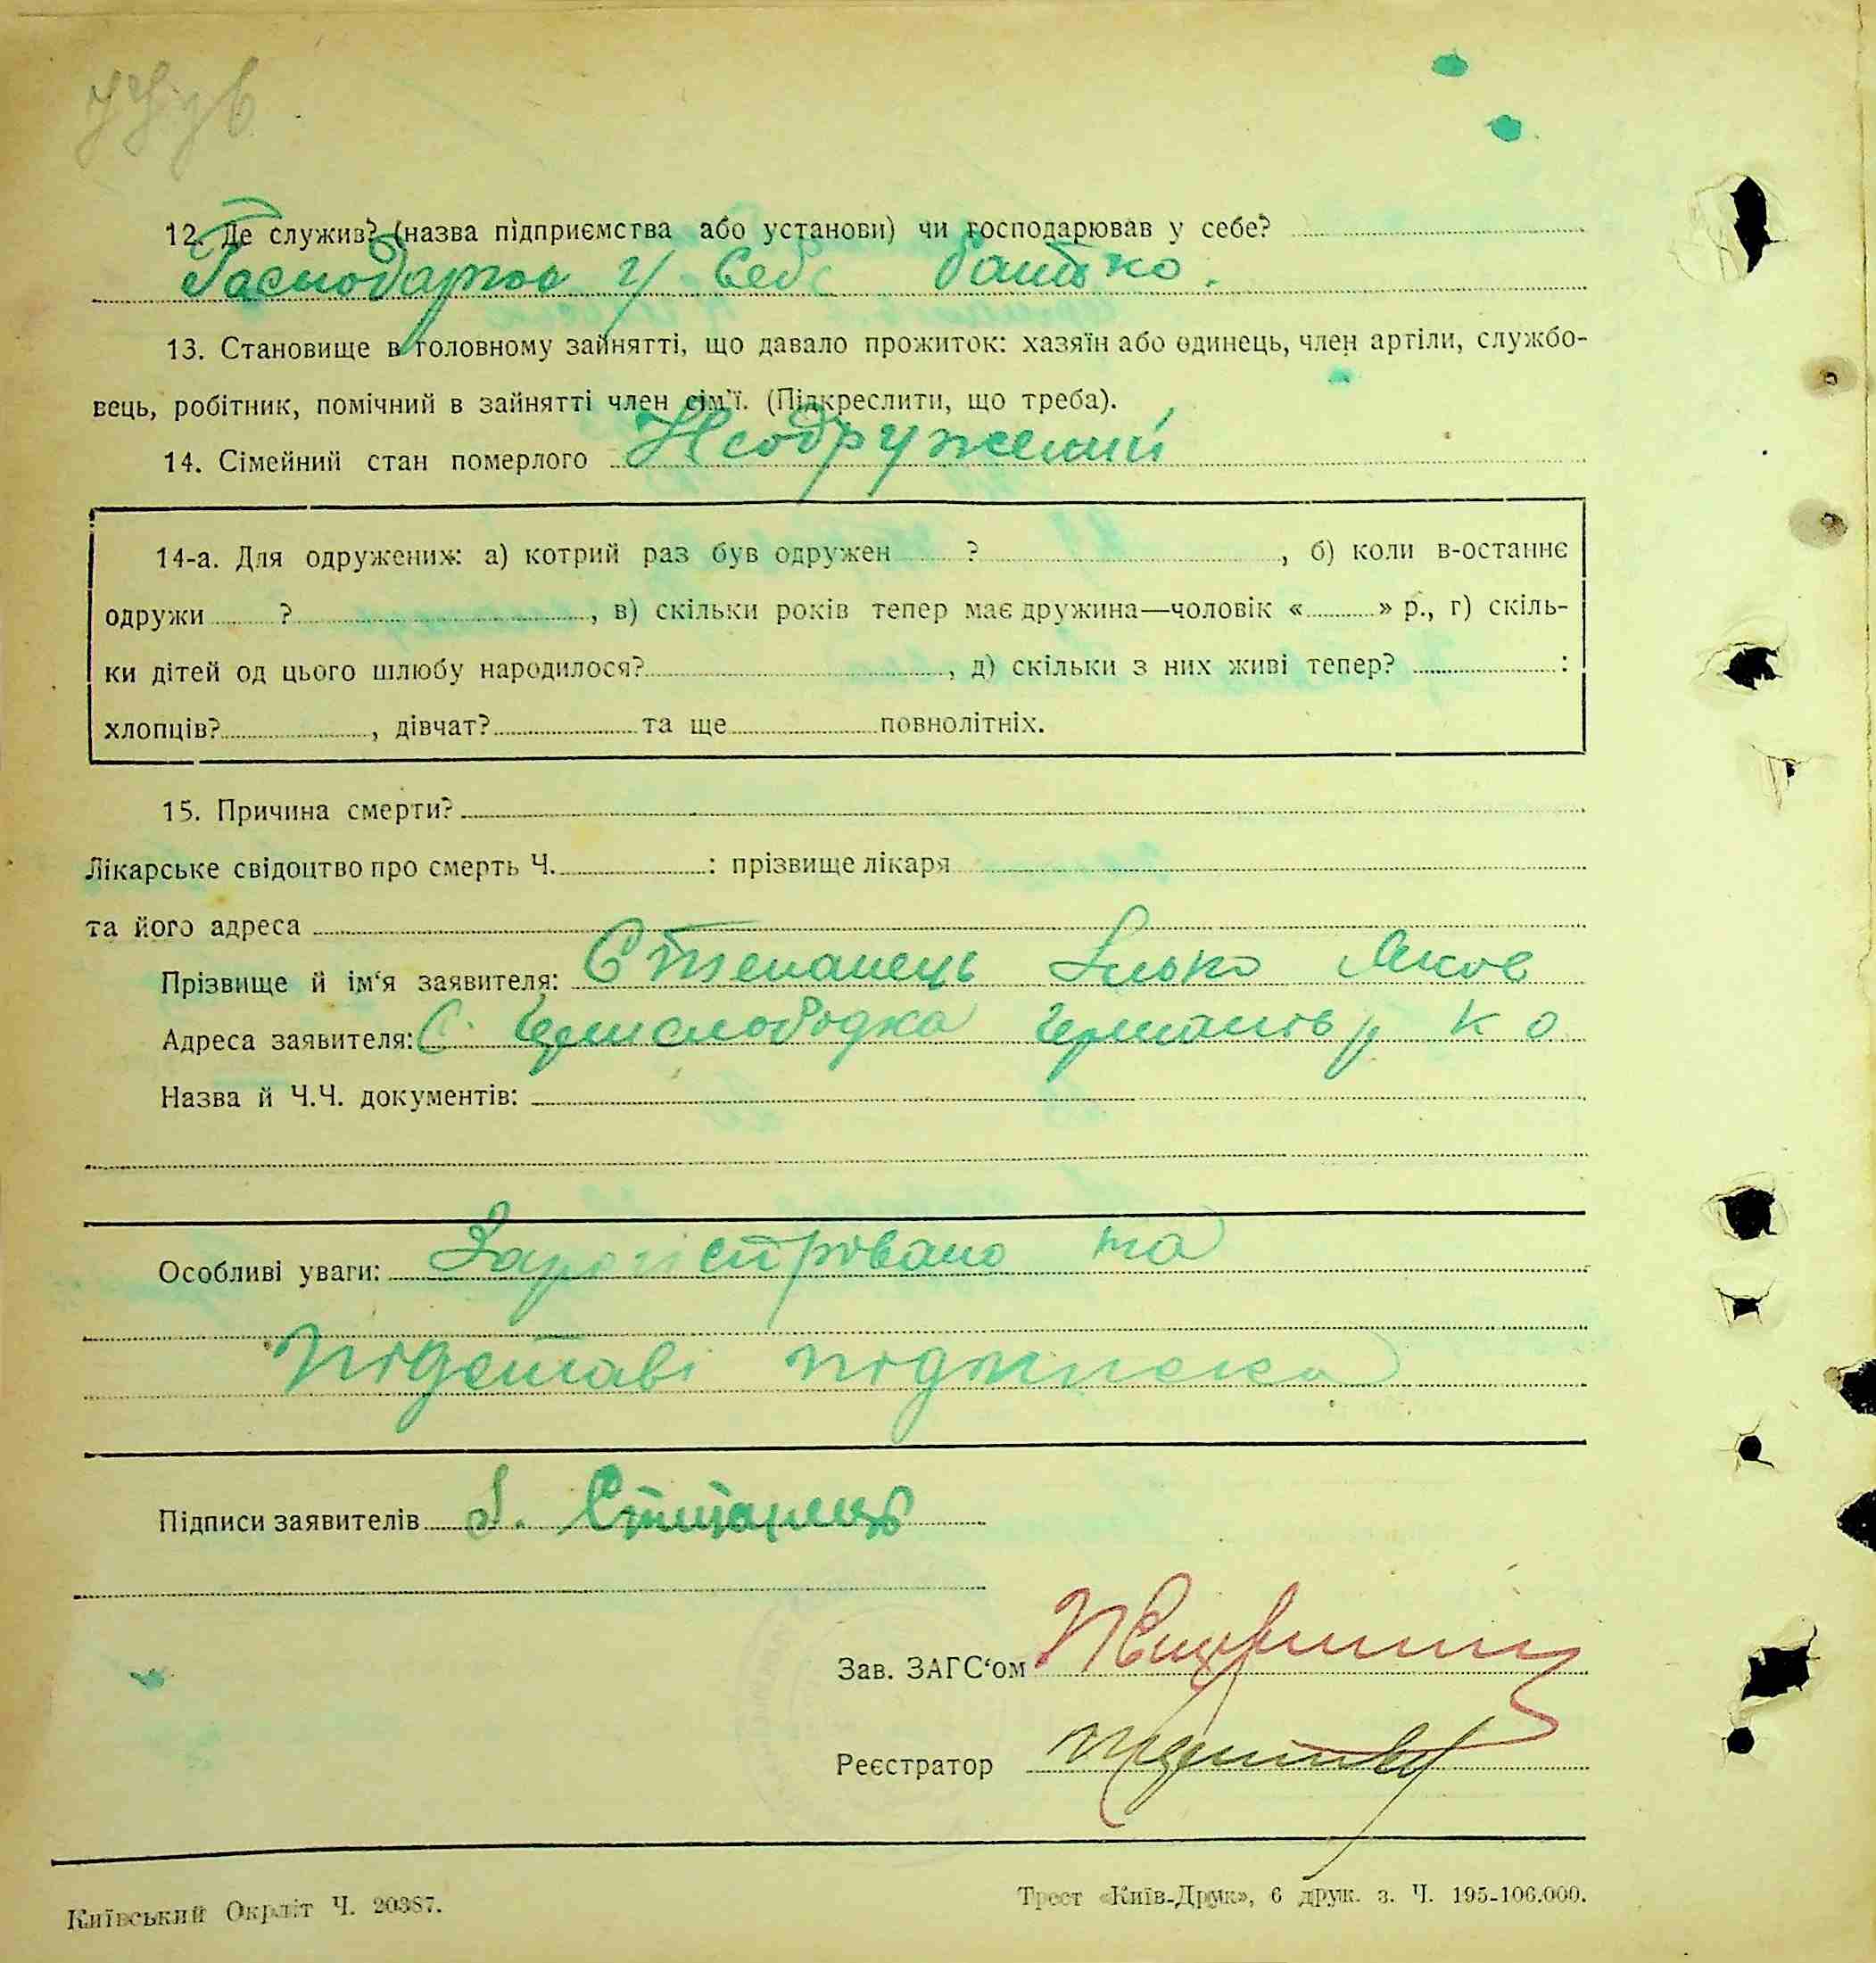 12. Де служив? (назва підприємства або установи) чи господарював у себе?
Господарює у себе батько.
13. Становище в головному зайнятті, що давало прожиток: хазяїн або одинець, член артіли, службо-
вець, робітник, помічний в зайнятті член сім'ї. (Підкреслити, що треба).
14. Сімейний стан померлого Неодружений
14-а. Для одружених: а) котрий раз був одружен ? , б) коли в-останнє
одружи ? , в) скільки років тепер має дружина—чоловік « » р., г) скіль-
ки дітей од цього шлюбу народилося? , д) скільки з них живі тепер? :
хлопців? , дівчат? та ще повнолітніх.
15. Причина смерти?
Лікарське свідоцтво про смерть Ч. : прізвище лікаря
та його адреса
Прізвище й ім'я заявителя: Степанець Ілько Яков
Адреса заявителя: С. К О
Назва й Ч.Ч. документів:
Особливі уваги: Зарегістровано на
підставі підписка
Підписи заявителів І. Степанець
Зав. ЗАГС'ом
Реєстратор
Київський Окрліт Ч. 20387.
Трест «Київ-Друк», 6 друк. з. Ч. 195-106.000.